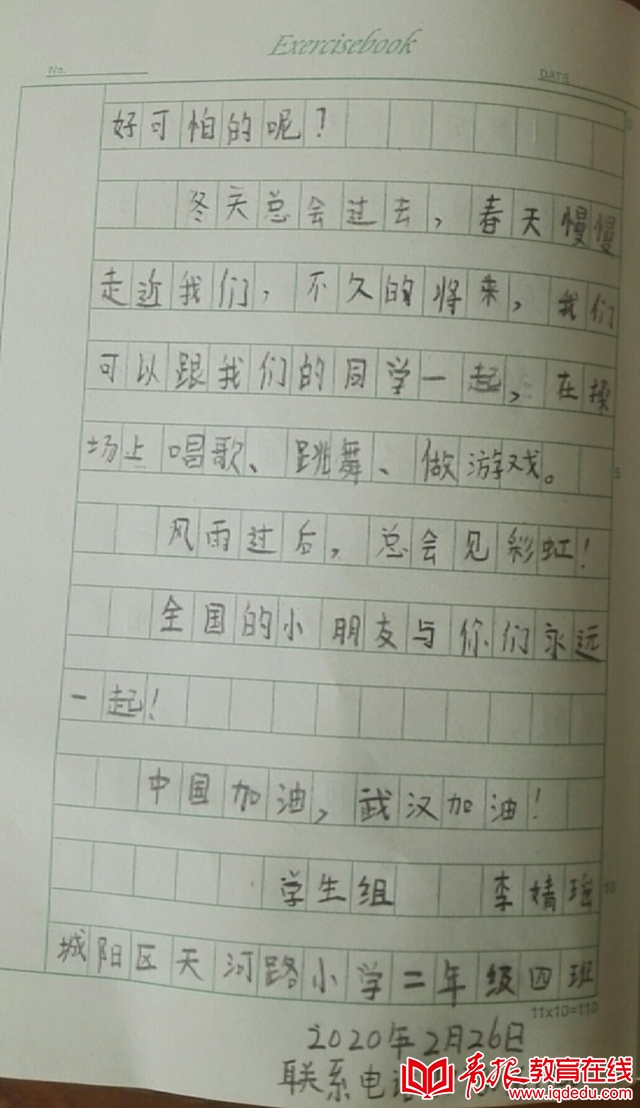 Exercisebook
No.
DATE
好可怕的呢？
冬天总会过去，春天慢慢
走近我们，不久的将来，我们
可以跟我们的同学一起，在操
场上唱歌、跳舞、做游戏。
5
风雨过后，总会见彩虹！
全国的小朋友与你们永远
一起！
中国加油，武汉加油！
学生组 李婧瑶
10
城阳区天河路小学二年级四班
11x10=110
2020年2月26日
联系电
青报教育在线
www.iqdedu.com